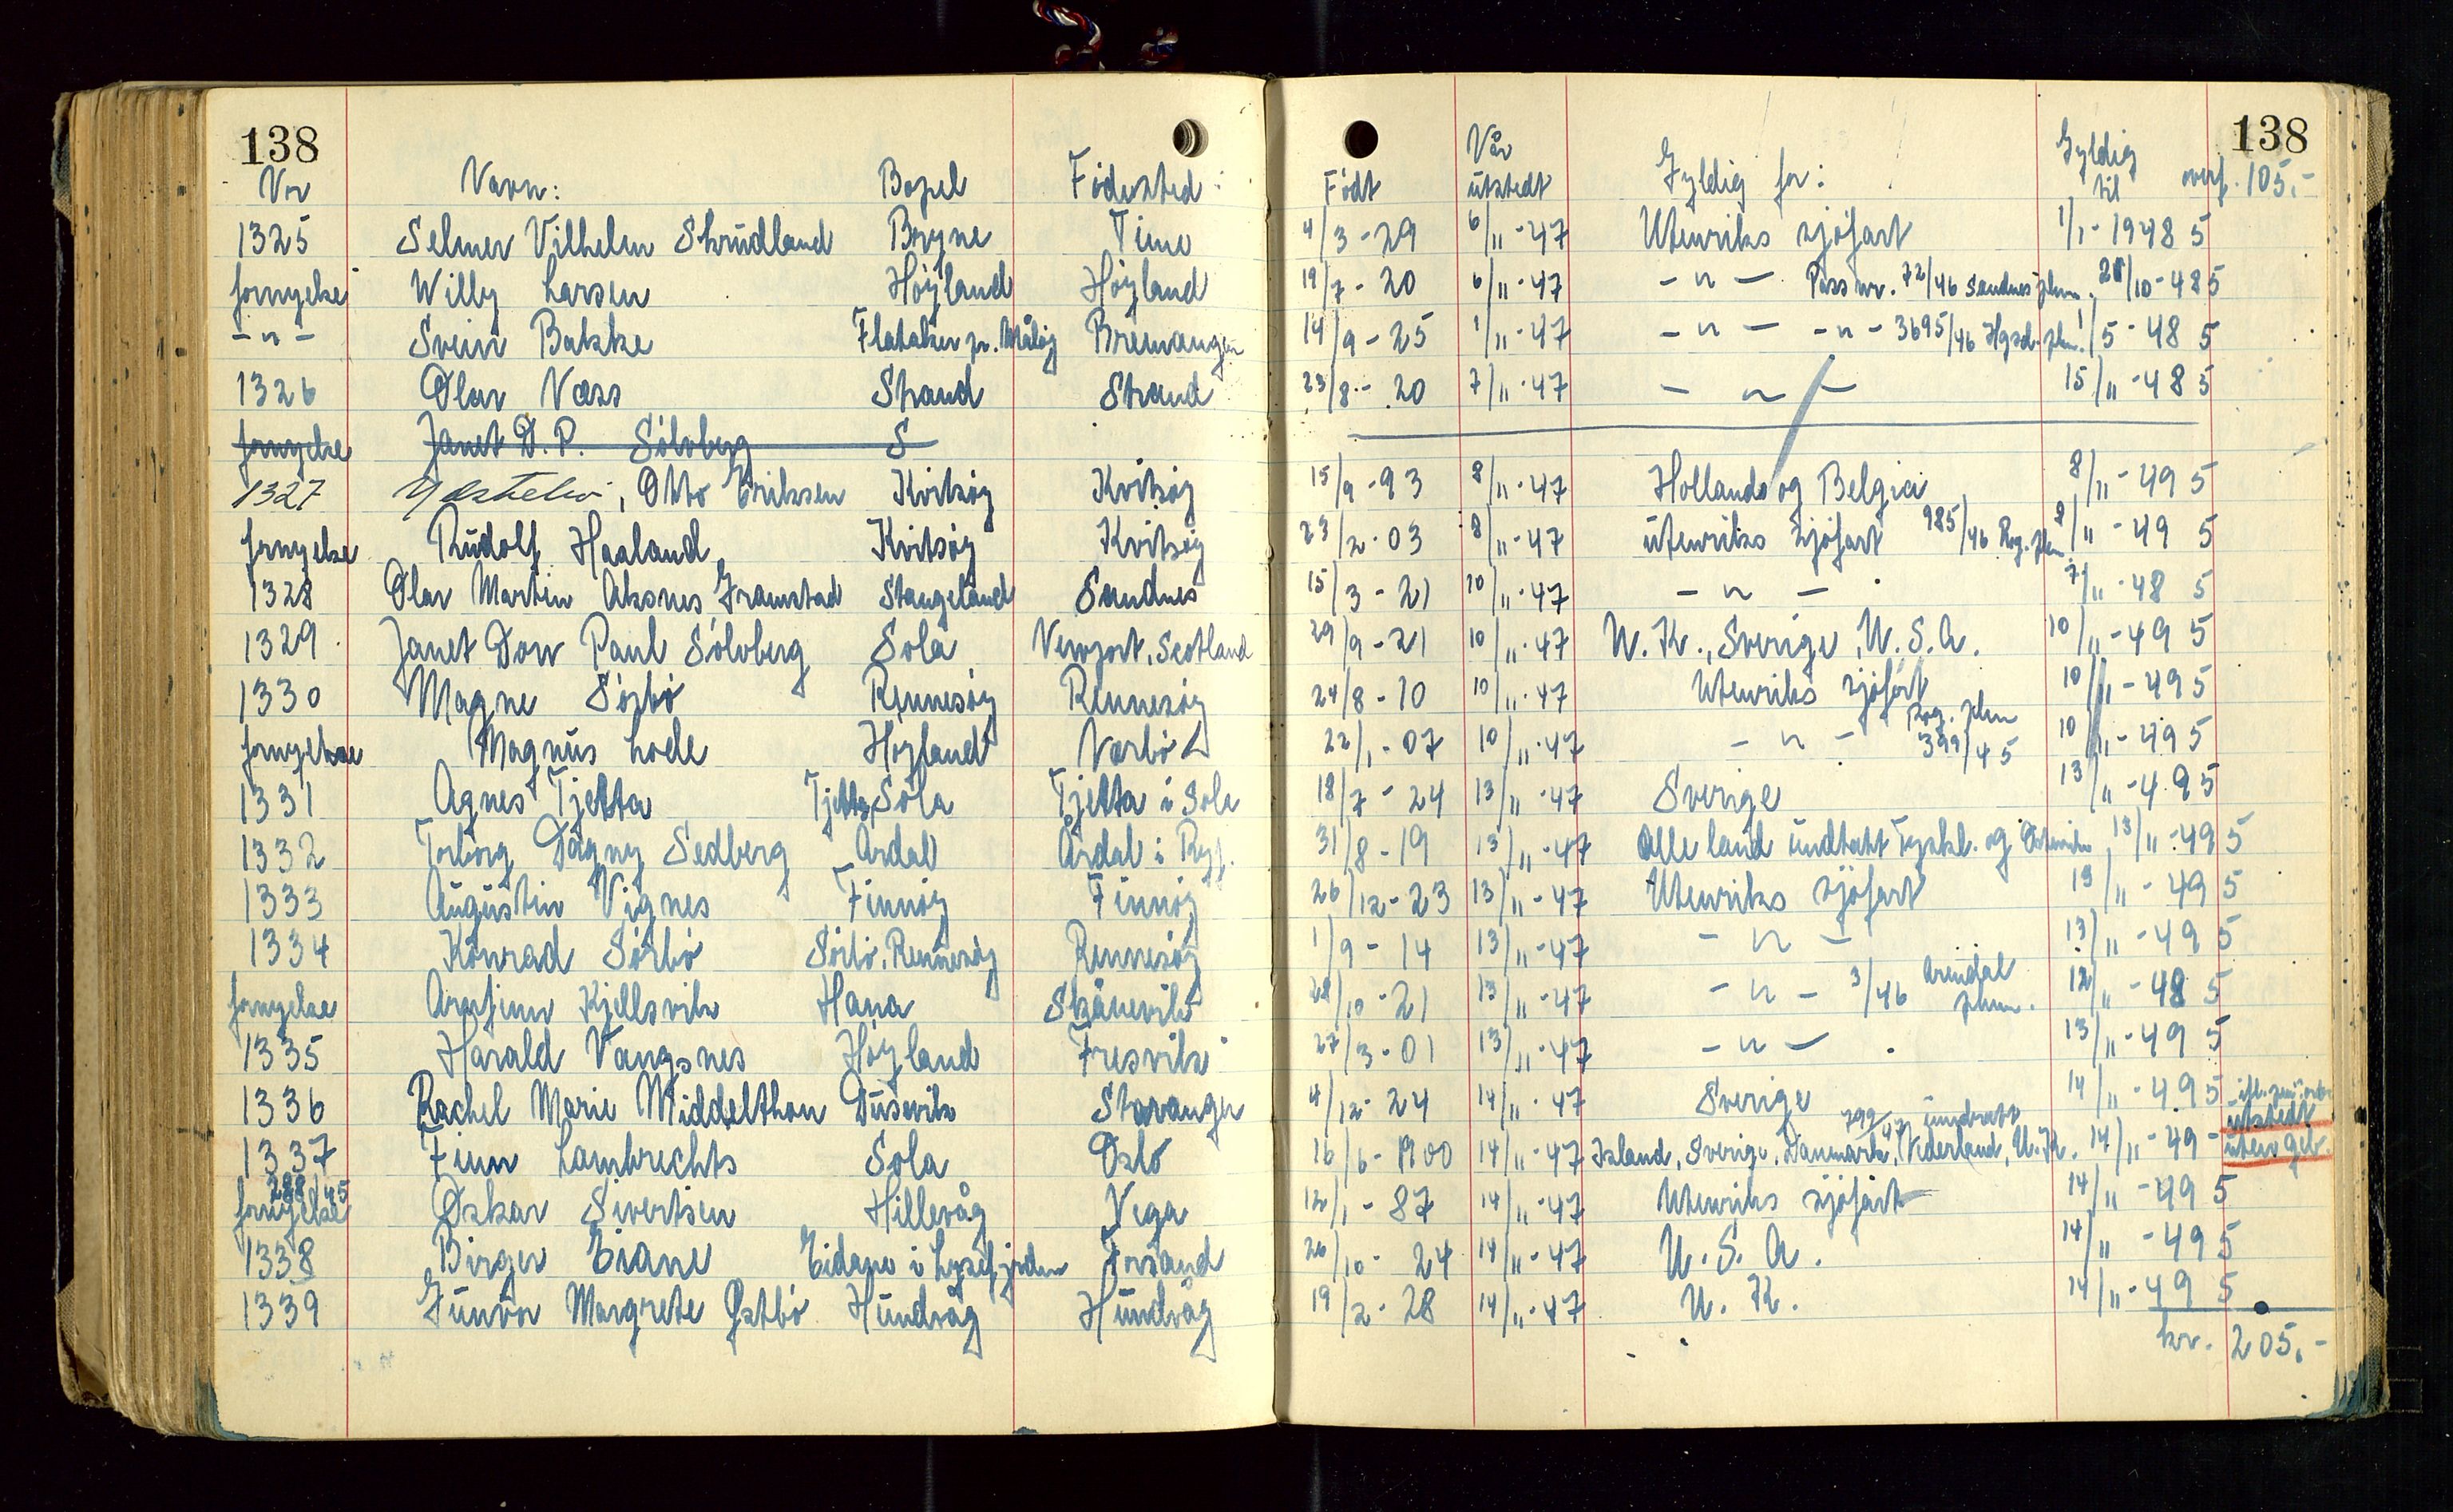 138 138
Nr Navn: Bopel Födested: Födt Når utstedt Gyldig for: Gyldig til overf. 105.-
1325 Selmer Vilhelm Skrudland Bryne Time 4/3-29 6/11-47 Utenriks sjöfart 1/1-1948 5
fornyelse Willy Larsen Höyland Höyland 19/7-20 6/11-47 -"- Pass nr. 72/46 Sandnes pkm. /10-48 5
-"- Svein Bakke Flatøken pr. Måløy Bremanger 14/9-25 1/11-47 -"- -"- 3695/46 Hgsd. pkm. 1/5-48 5
1326 Olav Næss Strand Strand 23/8-20 7/11-47 -"- 15/11-48 5
fornyelse Janet D. P. Sölvberg S
1327 Ydstebö, Otto Eriksen Kvitsöy Kvitsöy 15/9-93 8/11-47 Holland og Belgia 8/11-49 5
fornyelse Rudolf Haaland Kvitsöy Kvitsöy 23/2-03 8/11-47 utenriks sjöfart 985/46 Rog. pkm. 8/11-49 5
1328 Olav Martin Aksnes Gramstad Stangeland Sandnes 15/3-21 10/11-47 -"- 7/11-48 5
1329 Janet Dow Paul Sölvberg Sola Newport, Scotland 29/9-21 10/11-47 U.K., Sverige, U.S.A. 10/11-49 5
1330 Magne Sörbö Rennesöy Rennesöy 24/8-10 10/11-47 Utenriks sjöfart 10/11-49 5
fornyelse Magnus Lode Höyland Nærbö 22/1-07 10/11-47 -"- Rog. pkm 399/45 10/11-49 5
1331 Agnes Tjetta Tjetta, Sola Tjetta i Sola 18/7-24 13/11-47 Sverige 13/11-49 5
1332 Torborg Dagny Sedberg Årdal Årdal i Ryf. 31/8-19 13/11-47 Alle land undtatt Tyskl. og 13/11-49 5
1333 Augustin Vignes Finnöy Finnöy 26/12-23 13/11-47 Utenriks sjöfart 13/11-49 5
1334 Konrad Sörbö Sörbö, Rennesöy Rennesöy 1/9-14 13/11-47 -"- 13/11-49 5
fornyelse Arnfinn Kjellsvik Hana Skånevik 28/10-21 13/11-47 -"- 3/46 Arendal pkm. 12/11-48 5
1335 Harald Vangsnes Höyland Fresvik 27/3-01 13/11-47 -"- 13/11-49 5
1336 Rachel Marie Middelthon Dusevik Stavanger 4/12-24 14/11-47 Sverige 14/11-49 5
1337 Finn Lambrechts Sola Oslo 16/6-1900 14/11-47 Island, Sverige, Danmark, Nederland, U.K. 14/11-49 - utstedt uten geb.
fornyelse 288/45 Oskar Sivertsen Hillevåg Vega 12/1-87 14/11-47 Utenriks sjöfart 14/11-49 5
1338 Birger Eiane Eidane i Lysefjorden Forsand 26/10-24 14/11-47 U.S.A. 14/11-49 5
1339 Gunvor Margrete Østbö Hundvåg Hundvåg 19/2-28 14/11-47 U.K. 14/11-49 5
kr. 205.-